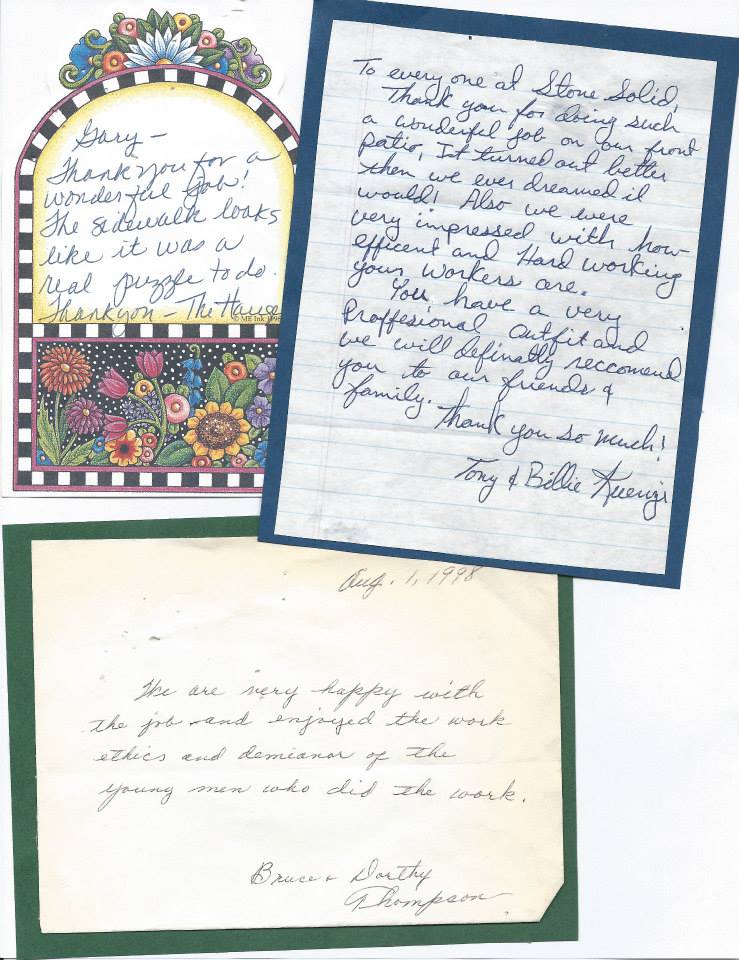 Gary –
Thank you for a
wonderful job!
The sidewalk looks
like it was a
real puzzle to do.
Thankyou – The Hause
© ME Ink 1998
To every one at Stone Solid,
Thank you for doing such
a wonderful job on our front
patio, It turned out better
then we ever dreamed it
would! Also we were
very impressed with how
efficent and Hard working
your workers are.
You have a very
Proffesional outfit and
we will definatly reccomend
you to our friends &
family.
Thank you so much!
Tony & Billie Kuenzi
Aug. 1, 1998
We are very happy with
the job and enjoyed the work
ethics and demianor of the
young men who did the work.
Bruce & Dorthy
Thompson